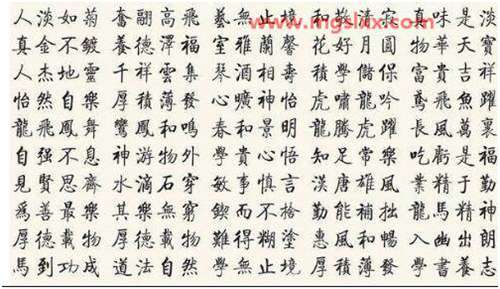 www.mgslxx.com
人淡如菊 奮翮高飛 藝無止境 和敬清寂 真味是淡
真金不鍍 養德澤福 室雅蘭馨 花好月圓 物華天寶
人杰地靈 千祥雲集 琴 積學儲 富貴吉祥
怡然自樂 厚積薄發 心曠神怡 虎嘯龍吟 鳶飛魚躍
龍飛鳳舞 鸞鳳和鳴 春和景明 龍騰虎躍 長風萬裏
自强不息 神游物外 學貴心悟 知足常樂 吃虧是福
見賢思齊 水滴石穿 敏事慎言 漢唐雄風 業精于勤
爲善最樂 其樂無窮 鍥而不捨 勤能補拙 龍馬精神
厚德載物 厚德載物 難得糊塗 惠風和暢 入幽出朗
馬到功成 道法自然 學無止境 厚積薄發 學書養志